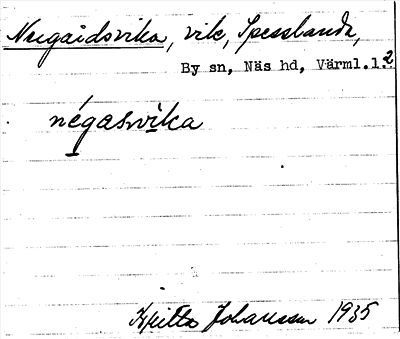 Neugaidsvika, vik, Spesslanda,
By sn, Näs hd, Värml.l.2
négasvika
Johansson 1935